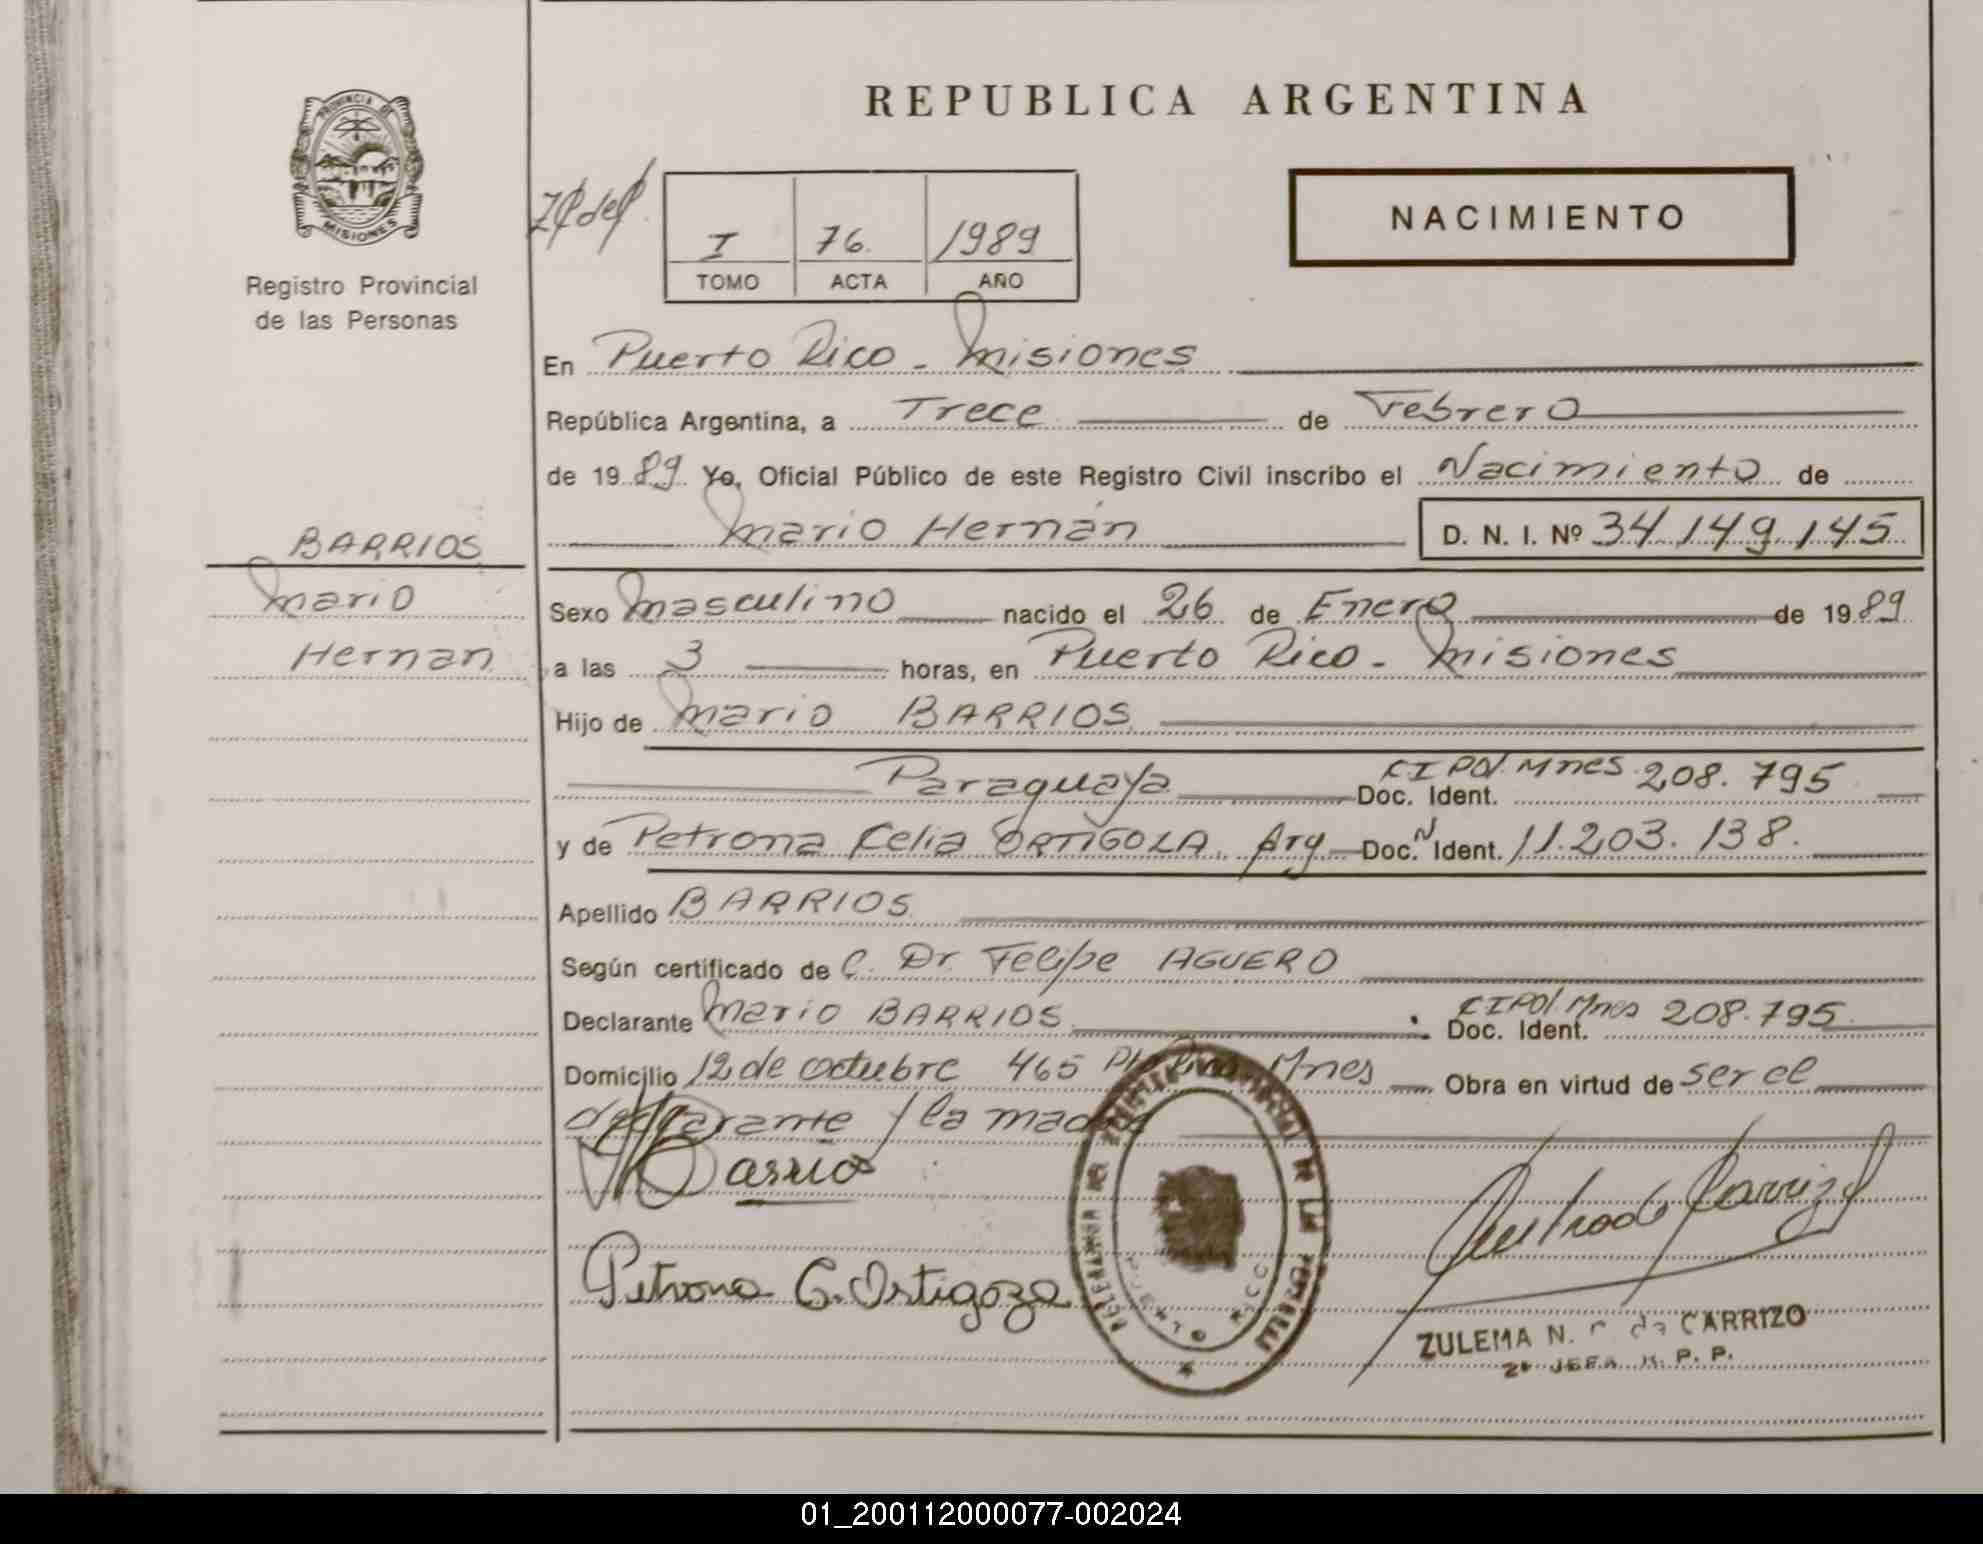 REPUBLICA ARGENTINA
PROVINCIA DE
MISIONES
Registro Provincial
de las Personas
I 76. 1989
TOMO ACTA AÑO
NACIMIENTO
En Puerto Rico - Misiones
República Argentina, a Trece de Febrero
de 1989 Yo, Oficial Público de este Registro Civil inscribo el Nacimiento de
Mario Hernán D. N. I. Nº 34.149.145
BARRIOS
Mario
Hernan
Sexo Masculino nacido el 26 de Enero de 1989
a las 3 horas, en Puerto Rico - Misiones
Hijo de Mario BARRIOS
Paraguaya Doc. Ident. CIPol. Mnes 208.795
y de Petrona Celia ORTIGOZA, Arg Doc. N Ident. 11.203.138.
Apellido BARRIOS
Según certificado de C. Dr. Felipe AGUERO
Declarante Mario BARRIOS Doc. Ident. CIPol. Mnes 208.795
Domicilio 12 de octubre 465 Pto Rico Mnes Obra en virtud de ser el
declarante y la madre
Barrios
Petrona C. Ortigoza
PUERTO RICO
ZULEMA N. de CARRIZO
2ª JEFA R. P. P.
01_200112000077-002024